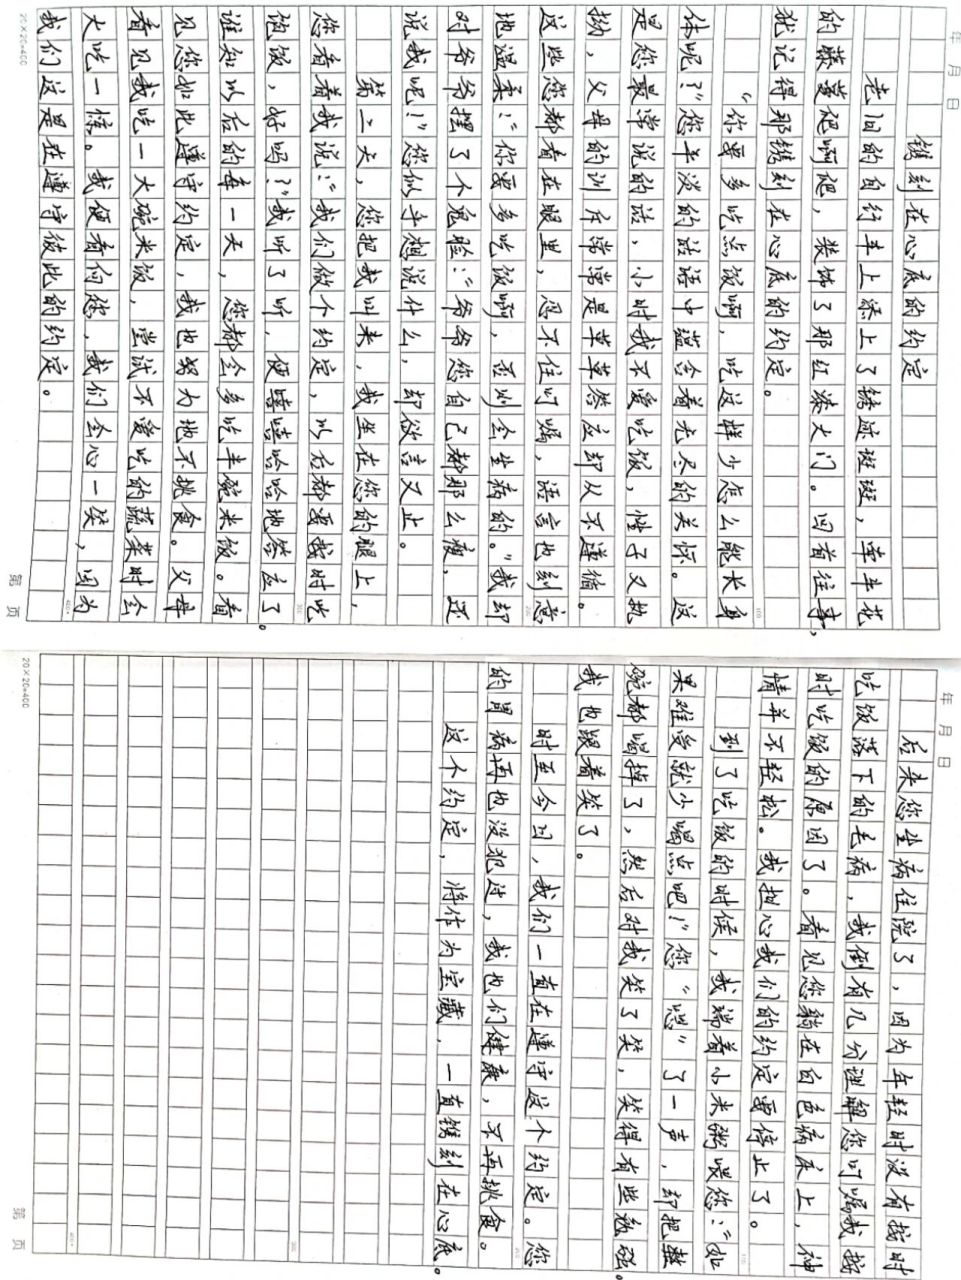 年 月 日
镌刻在心底的约定
老旧的自行车上添上了锈迹斑斑，牵牛花
的藤蔓爬啊爬，装饰了那红漆大门。回首往事，
犹记得那镌刻在心底的约定。
“你要多吃点饭啊，吃这样少怎么能长身
体呢？”您平淡的话语中蕴含着无尽的关怀。这
是您最常说的话，小时我不爱吃饭，性子又执
拗，父母的训斥常常是草草答应却从不遵循。
这些您都看在眼里，忍不住叮嘱，语言也刻意
地温柔：“你要多吃饭啊，否则会生病的。”我却
对爷爷摆了个鬼脸：“爷爷您自己都那么瘦，还
说我呢！”您似乎想说什么，却欲言又止。
第二天，您把我叫来，我坐在您的腿上，
您看着我说：“我们做个约定，以后都要按时吃
饱饭，好吗？”我听了听，便嘻嘻哈哈地答应了。
谁知以后的每一天，您都会多吃半碗米饭。看
见您如此遵守约定，我也努力地不挑食。父母
看见我吃一大碗米饭，尝试不爱吃的蔬菜时会
大吃一惊。我便看向您，我们会心一笑，因为
我们这是在遵守彼此的约定。
20×20=400
第 页
年 月 日
后来您生病住院了，因为年轻时没有按时
吃饭落下的毛病，我倒有几分理解您叮嘱我按
时吃饭的原因了。看见您躺在白色病床上，神
情并不轻松。我担心我们的约定要停止了。
到了吃饭的时候，我端着小米粥喂您：“如
果难受就少喝点吧！”您“嗯”了一声，却把整
碗都喝掉了，然后对我笑了笑，笑得有些勉强。
我也跟着笑了。
时至今日，我们一直在遵守这个约定。您
的胃病再也没犯过，我也们健康，不再挑食。
这个约定，将作为宝藏，一直镌刻在心底。
20×20=400
第 页